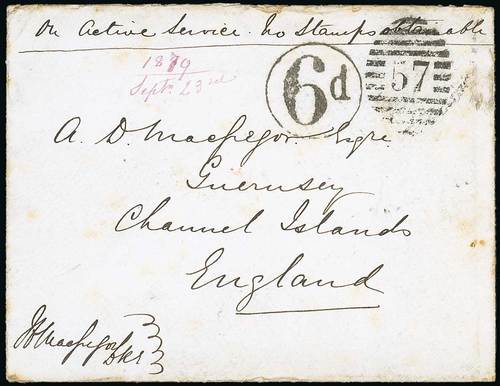 On Active Service. No Stamps obtainable
1879
Septr. 23rd
6d
57
A. D. Macgregor. Esqre.
Guernsey
Channel Islands
England
Macgregor